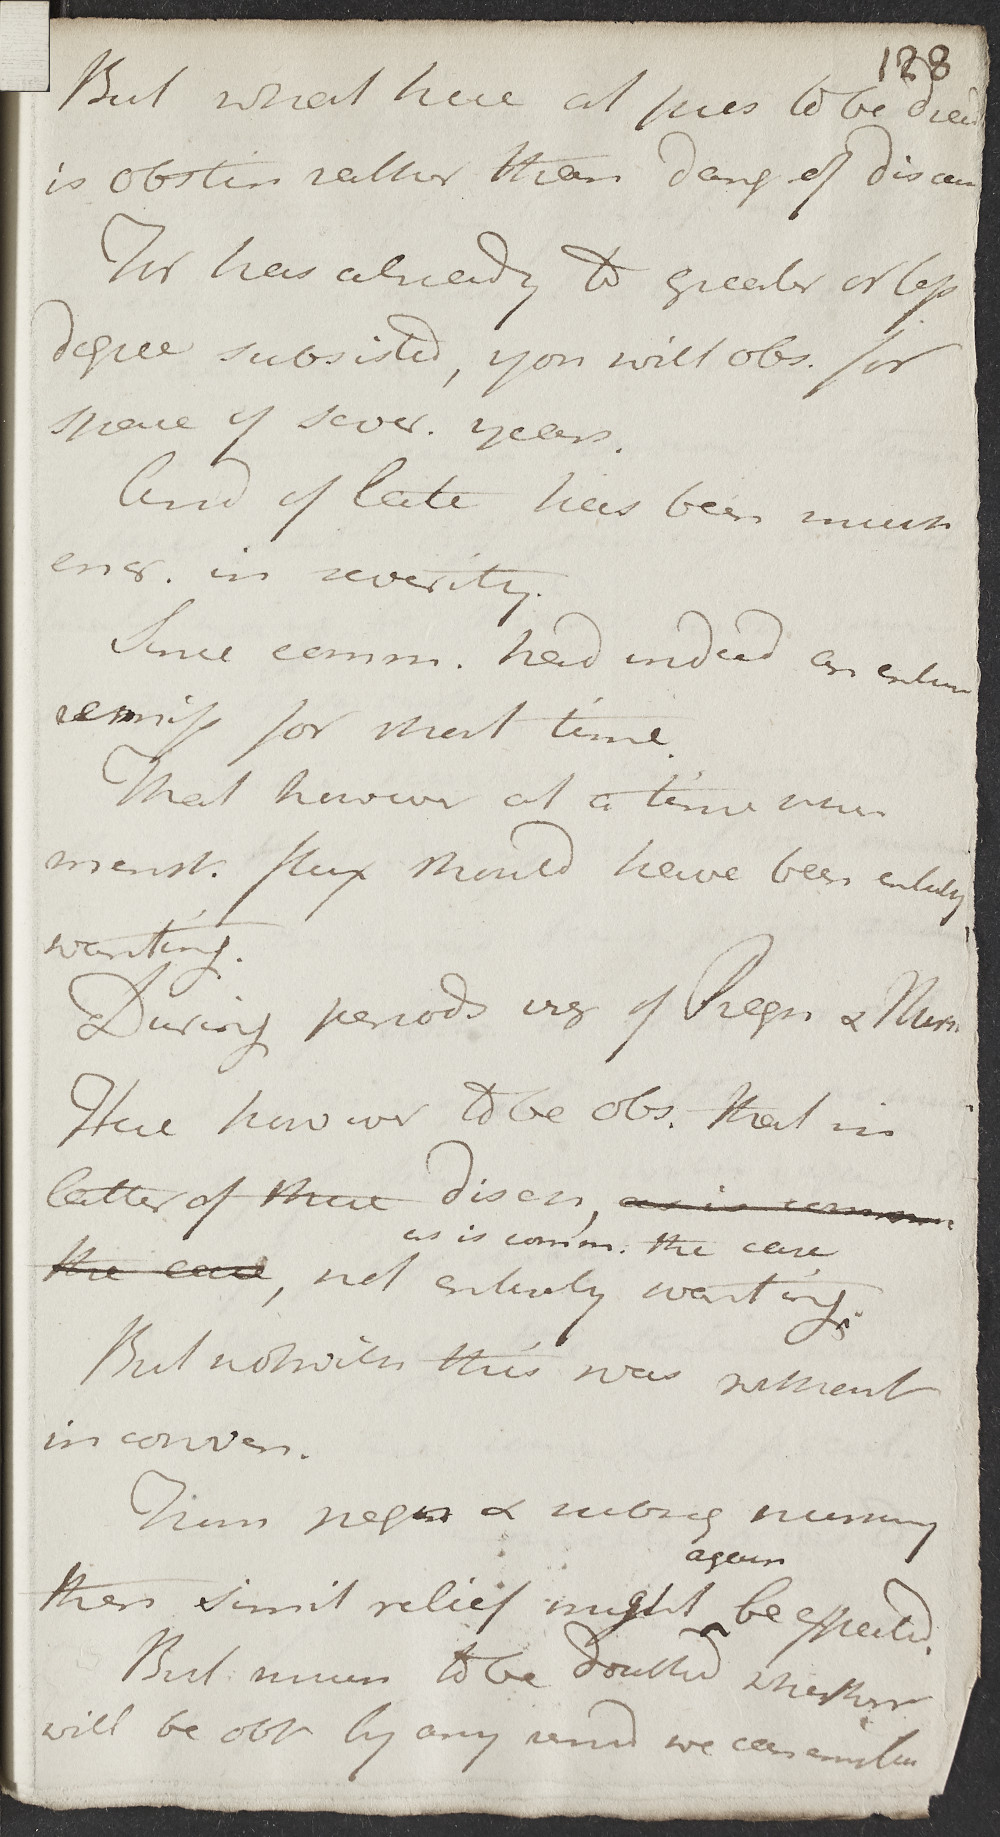 128
But what here at pres to be dread
is obstin rather than dang of disease
This has already to greater or less
degree subsisted, you will obs. for
space of sever. years.
And of late has been much
encr. in severity.
Since comm. had indeed an entire
remiss for short time.
That however at a time when
menst. flux should have been entirely
wanting.
During periods viz of Pregn & Nurs
Here however to be obs. that in
latter of these disch, as is comm
as is comm. the case
the case, not entirely wanting.
But notwith this was without
inconven.
From pregn & subseq nursing
again
then simil relief might be expected.
But much to be doubted whether
will be obt by any rem we can employ